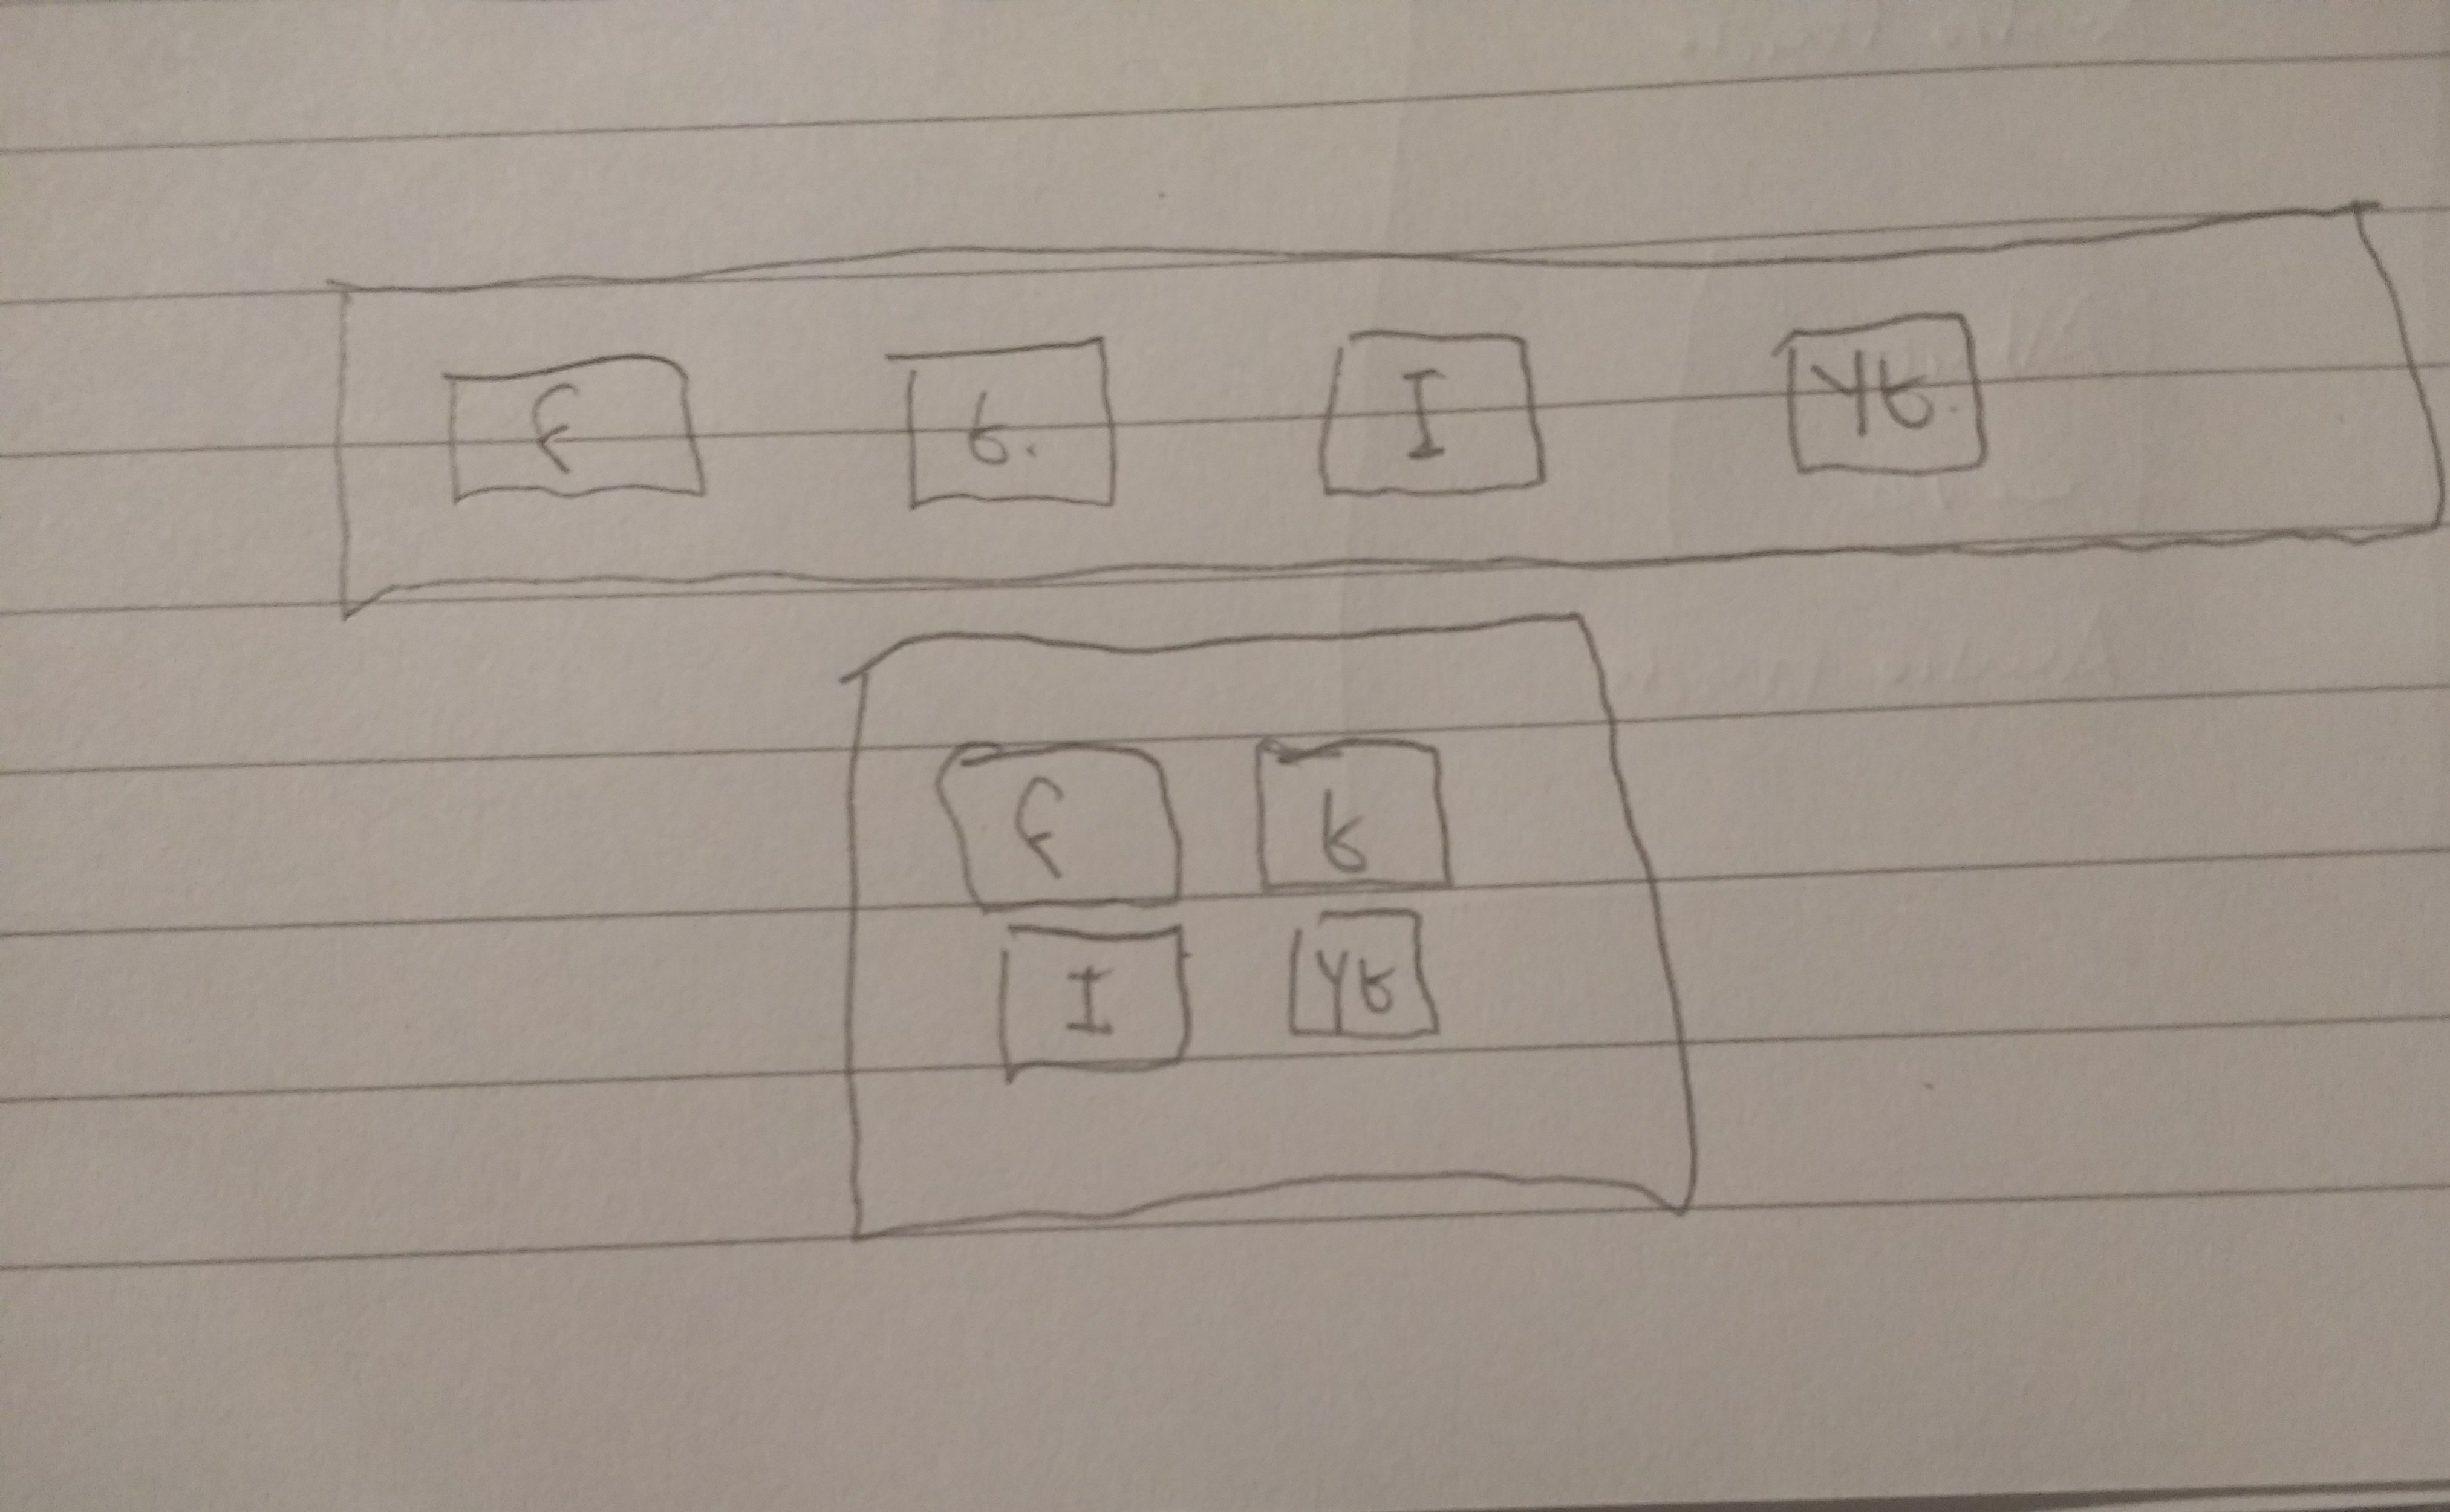 f t. I Yt.
f t
I Yt